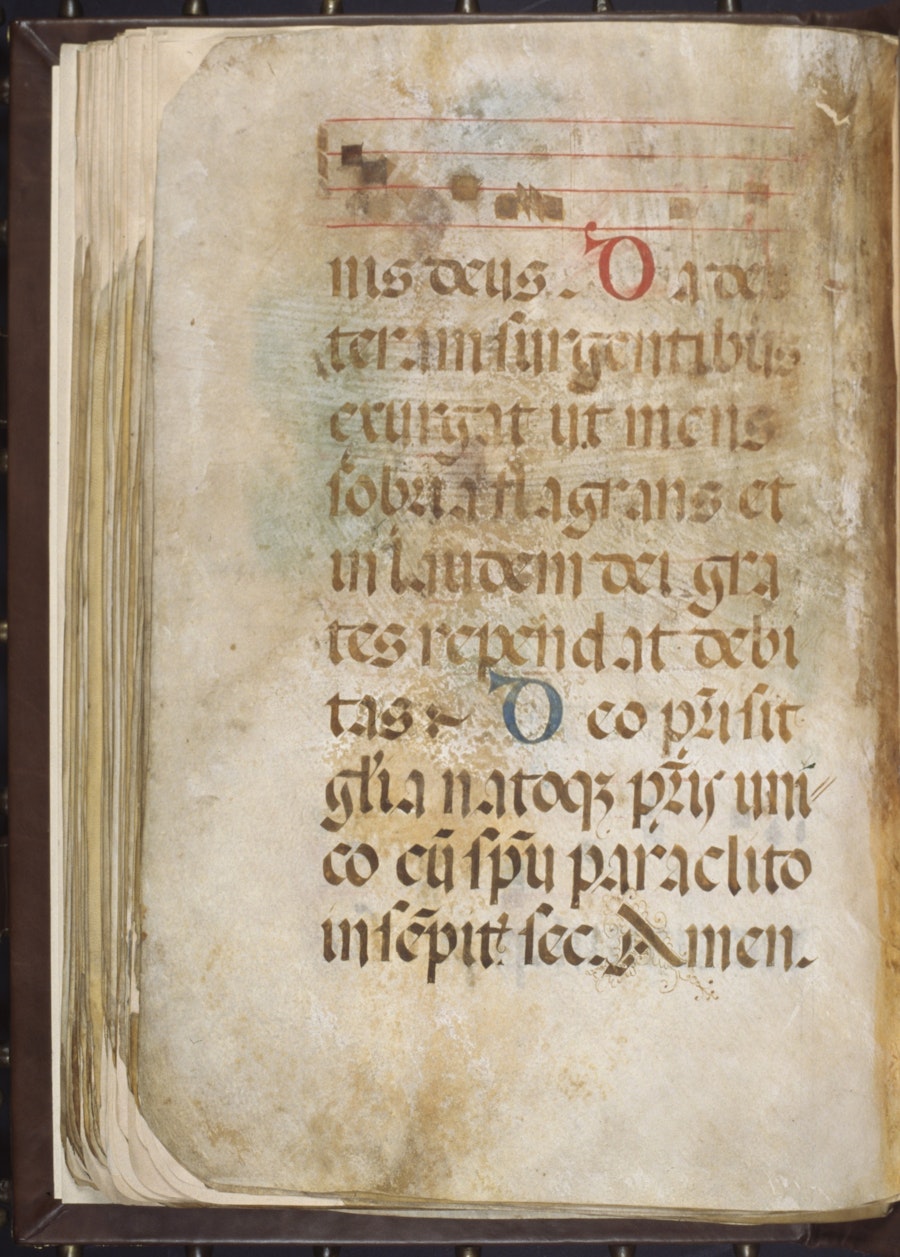 nis deus. Da dex
teram surgentibus
exurgat ut mens
sobria flagrans et
in laudem dei gra
tes rependat debi
tas. Deo pr̃i sit
gl'ia natoqz pr̃is uni
co cũ sp̃u paraclito
in sẽpit̃ sec. Amen.